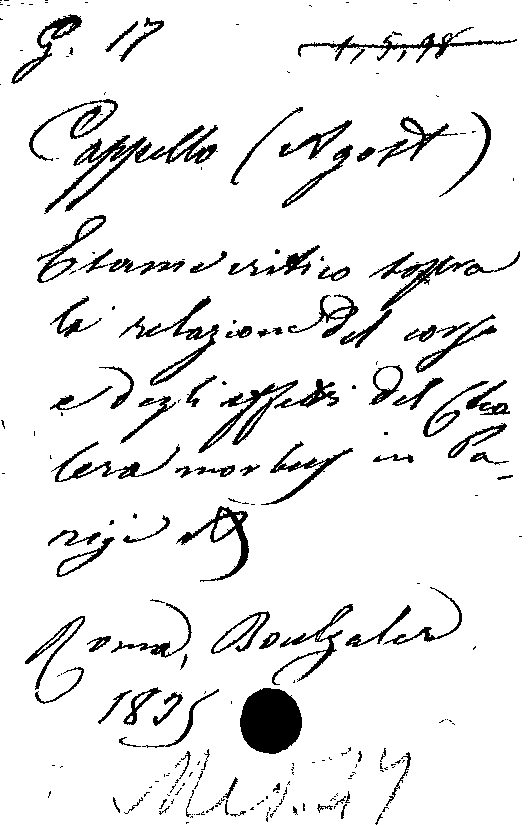 G. 17 1,5,98
Cappello (Agost)
Esame critico sopra
la relazione del corso
e degli effetti del Cho
lera morbus in Pa-
rigi
Roma, Boulzaler
1835
Med. 24